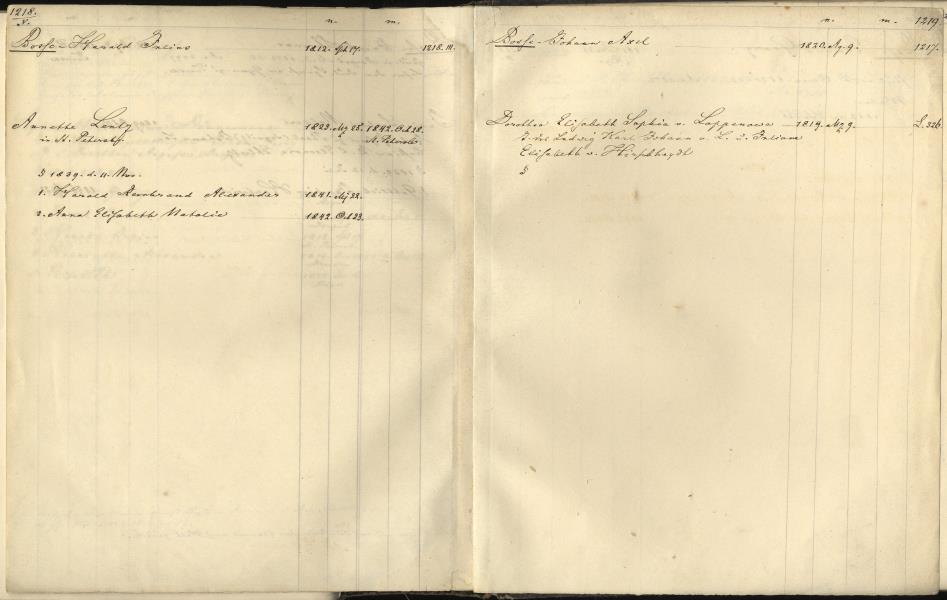 1218.
n. m.
Bosse Harald Julius 1812. Spt 17. 1218. III.
Annette Lentz 1823. Mz 25. 1842. Oct 28.
in St. Petersbg. St. Petersbg.
5 1839. d. 11. Nov.
1. Harald Rembrand Alexander 1841. Mj 22.
2. Anna Elisabeth Natalie 1842. Oct 23.
n. m. 1219
Bosse Johann Axel 1820. Ag. 9. 1217.
Dorothea Elisabeth Sophia v. 1819. Mz 9. L. 326
Ludwig Karl Johann v. L. u. Juliane
Elisabeth v.
5